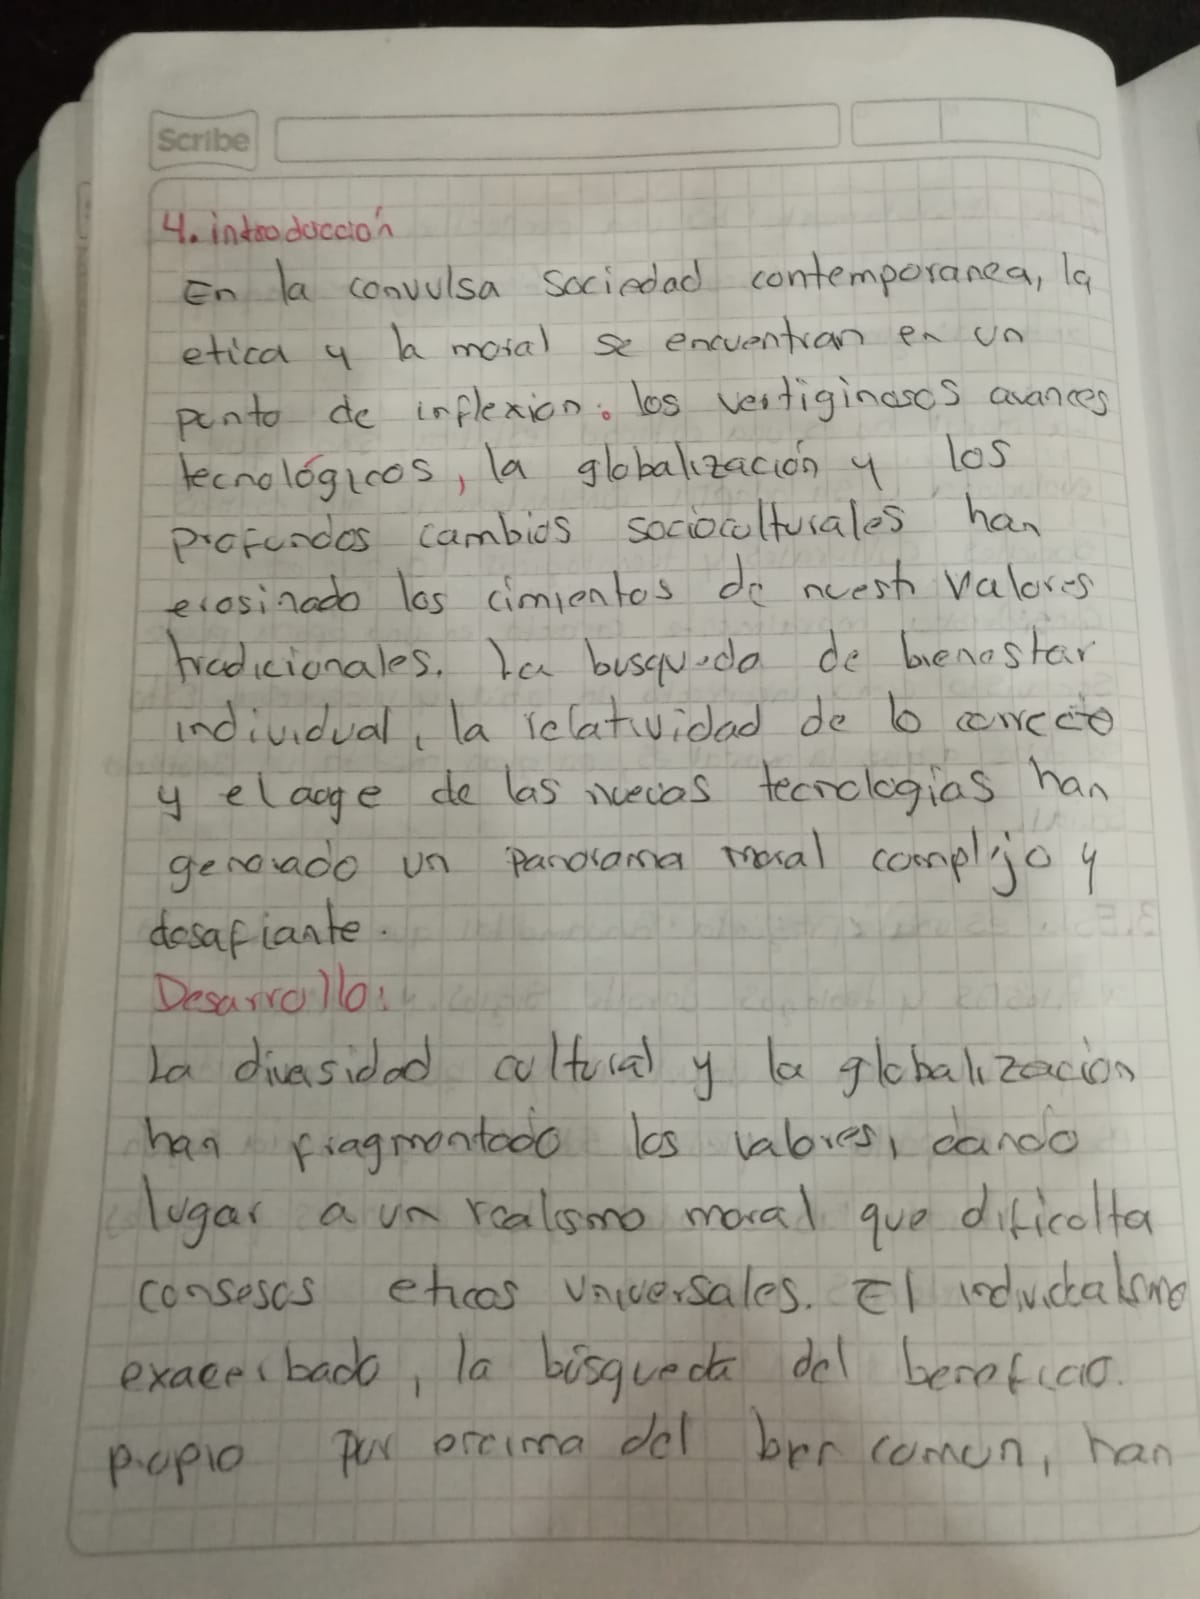 Scribe
4. introducción
En la convulsa sociedad contemporanea, la
etica y la moral se encuentran en un
punto de inflexion. los vertiginosos avances
tecnológicos, la globalización y los
profundos cambios socioculturales han
erosinado los cimientos de nuestr valores
tradicionales. La busqueda de bienestar
individual, la relatividad de lo correcto
y el aoge de las nuevas tecnologias han
generado un panorama moral complejo y
desafiante.
Desarrollo:
La diversidad cultural y la globalización
han fragmentado los valores, dando
lugar a un realismo moral que dificulta
consesos eticos universales. El individualismo
exacerbado, la búsqueda del beneficio.
propio por encima del ben comun, han